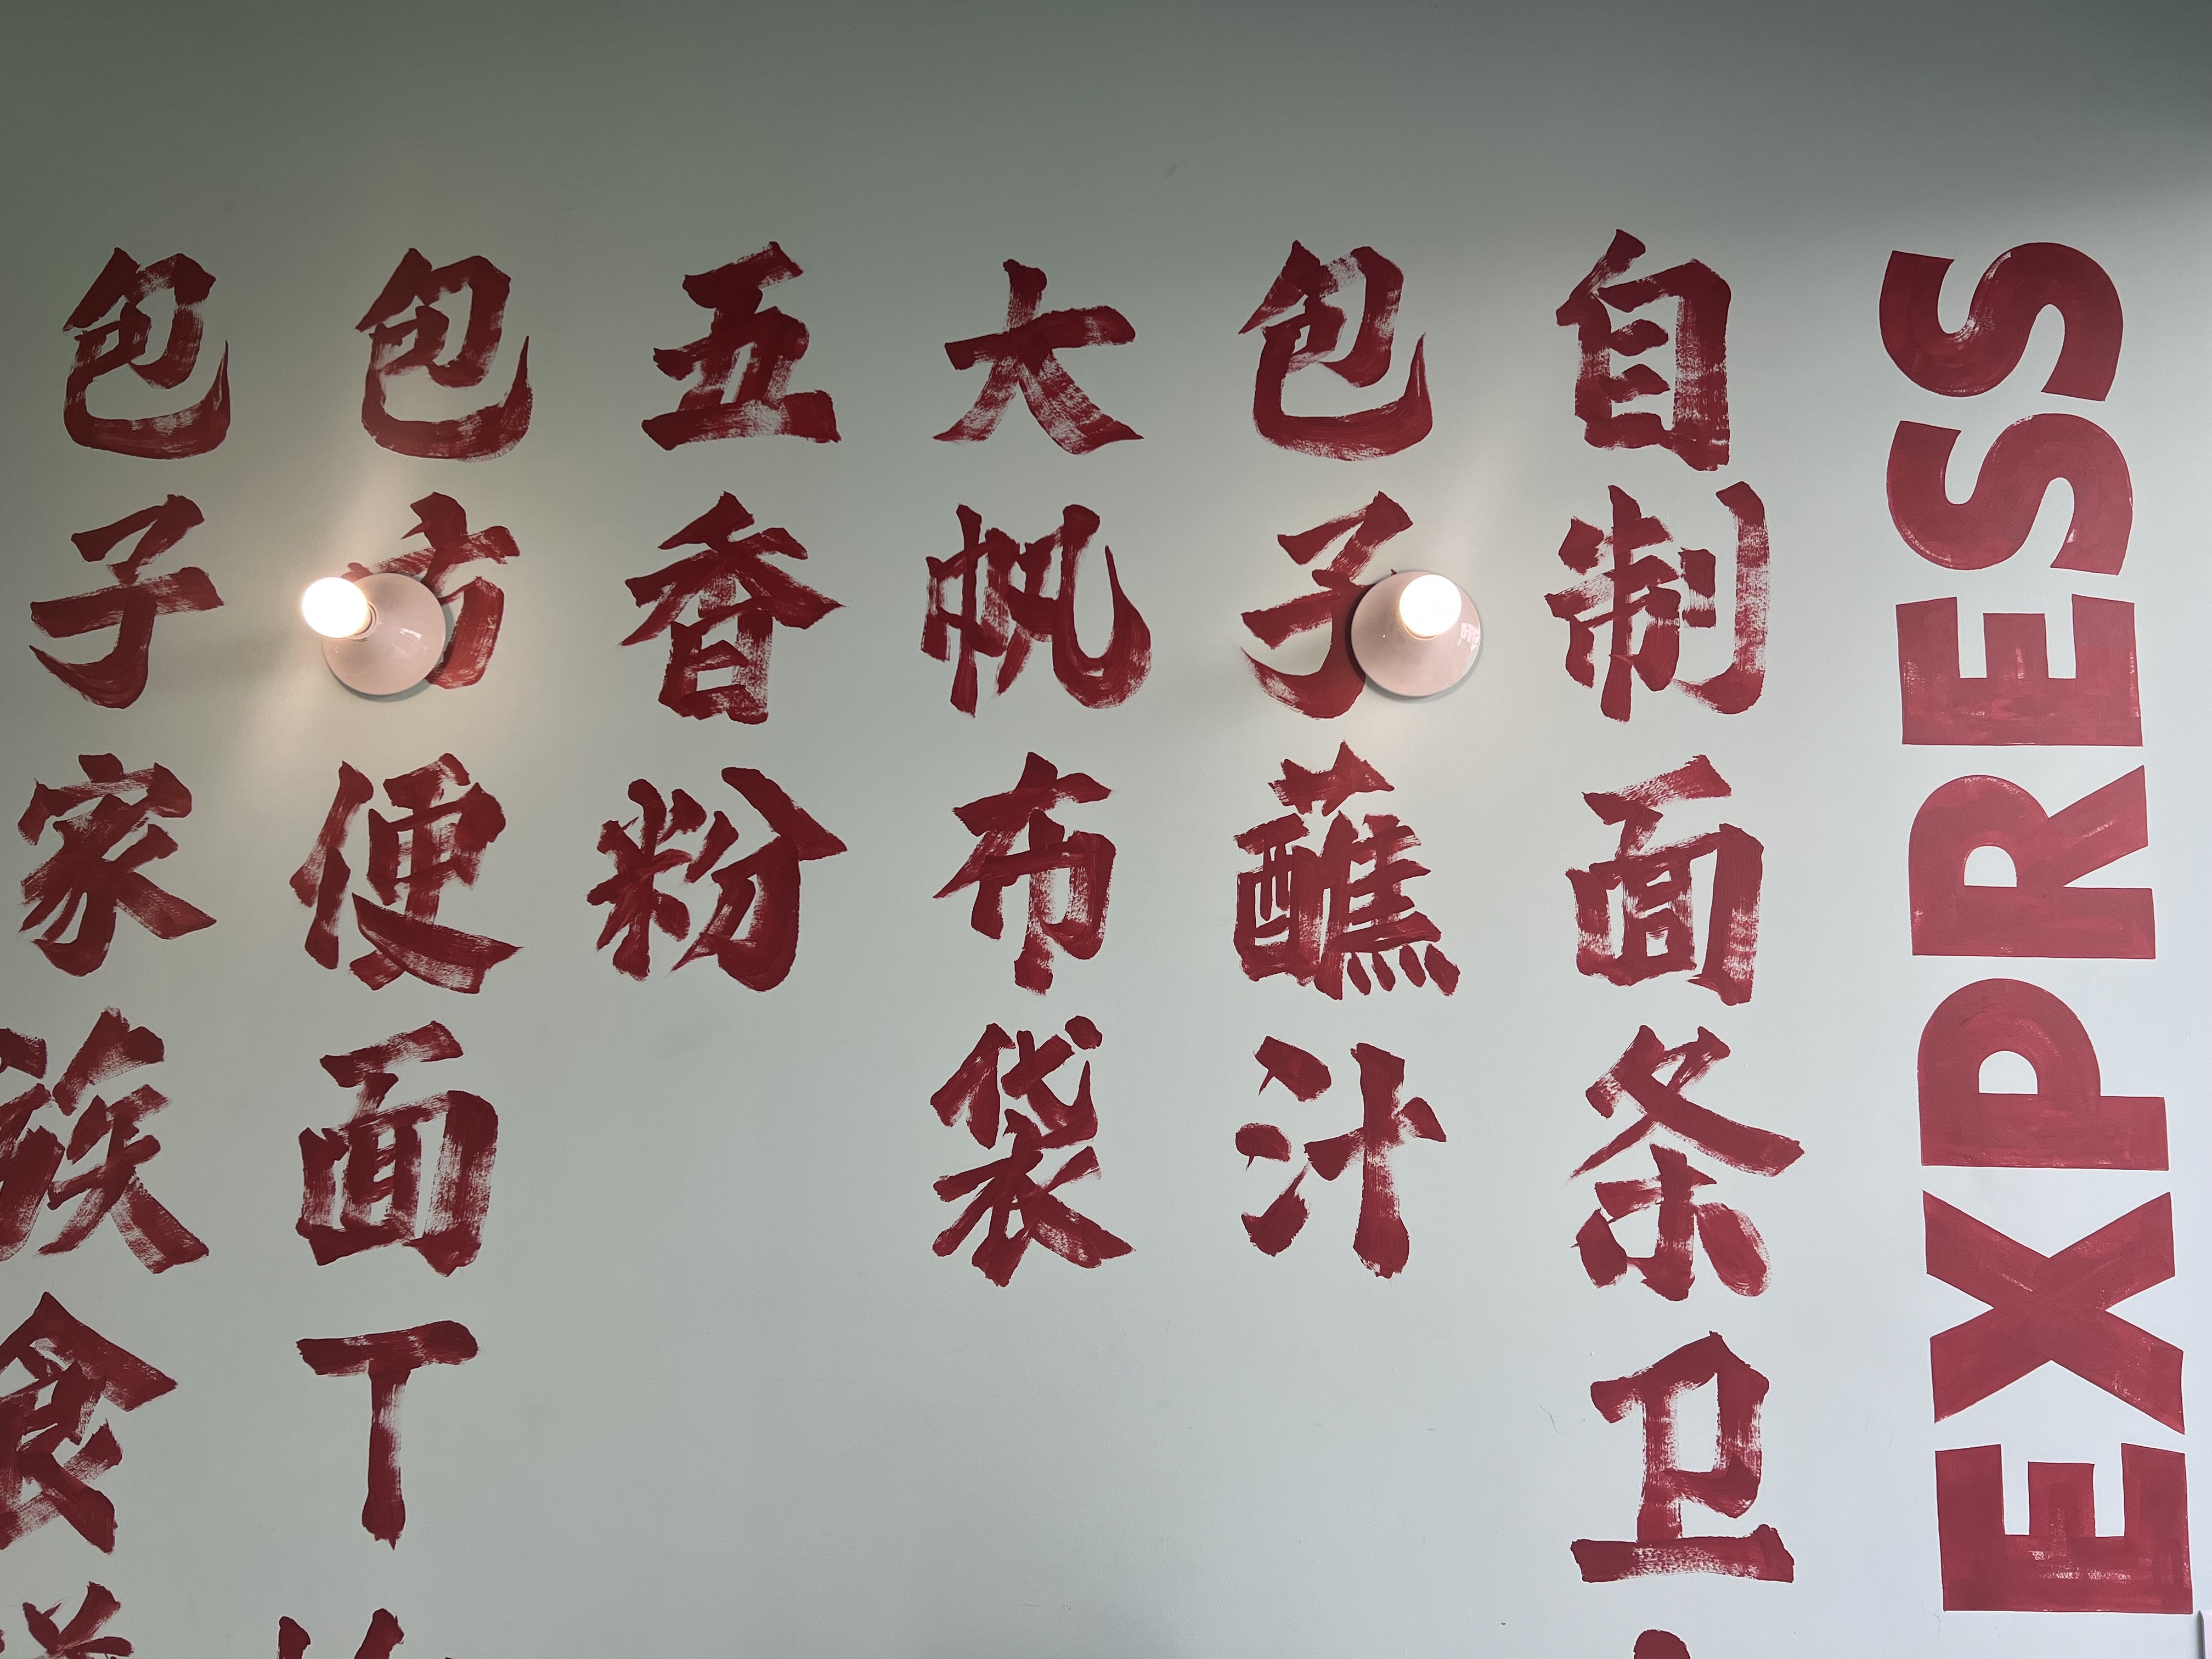 EXPRESS
自制面条卫
包子蘸汁
大帆布袋
五香粉
包方便面T
包子家族食